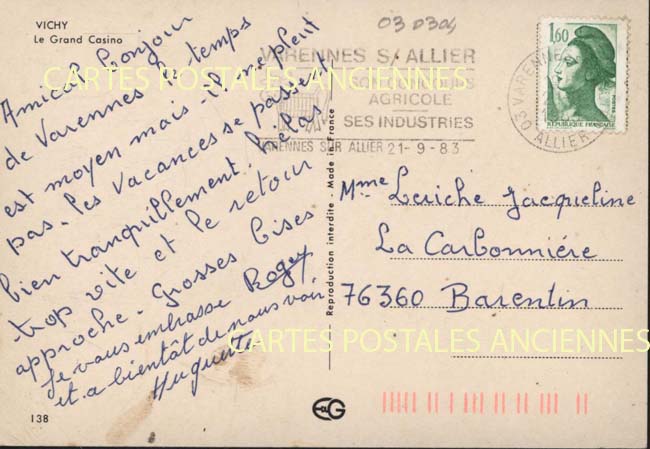 VICHY
Le Grand Casino
Amical Bonjour
de Varennes le temps
est moyen mais il ne pleut
pas - les vacances se passent
bien tranquillement. Hélas
trop vite et le retour
approche - Grosses bises
Je vous embrasse Roger
et a bientôt de nous voir
Huguette
138
Reproduction interdite - Made in France
03 0304
VARENNES S/ALLIER
SON CONCOURS
AGRICOLE
SES INDUSTRIES
VARENNES SUR ALLIER 21-9-83
1,60
REPUBLIQUE FRANÇAISE
03 ALLIER
Mme Leriche Jacqueline
La Carbonnière
76360 Barentin
EG
CARTES POSTALES ANCIENNES
CARTES POSTALES ANCIENNES